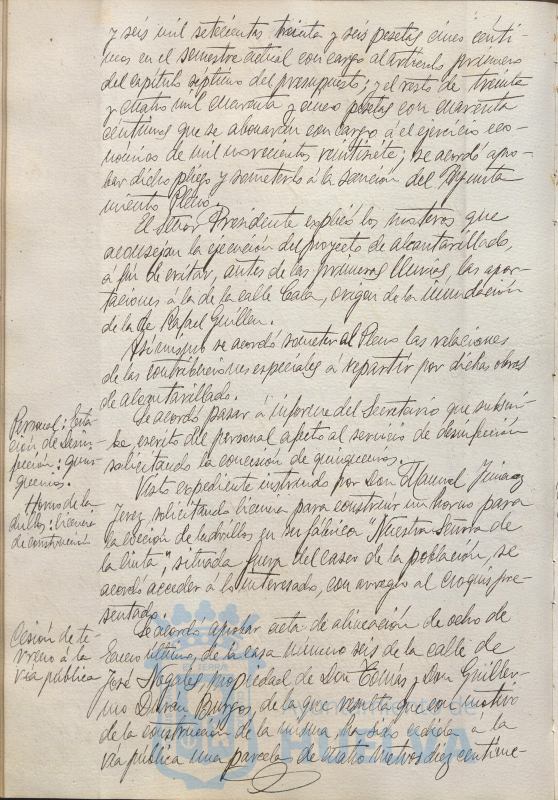 y seis mil setecientas treinta y seis pesetas cinco cénti-
mos en el semestre actual con cargo al artículo primero
del capítulo septimo del presupuesto; y el resto de treinta
y cuatro mil cuarenta y cinco pesetas con cuarenta
centimos que se abonaran con cargo á el ejercicio eco-
nómico de mil novecientos veintisiete; se acordó apro-
bar dicho pliego y someterlo á la sanción del Ayunta
miento Pleno.
El Señor Presidente explicó los motivos que
aconsejan la ejecución del proyecto de alcantarillado,
a fin de evitar, antes de las primeras lluvias, las apor-
taciones á la de la calle Cala, origen de la inundación
de la de Rafael Guillen.
Asimismo se acordó someter al Pleno las relaciones
de las contribuciones especiales á repartir por dichas obras
de alcantarillado.
Personal: Esta
ción de desin-
fección: quin-
quenios.
Se acordó pasar á informe del Secretario que suscri-
be, escrito del personal afecto al servicio de desinfección
solicitando la concesión de quinquenios.
Horno de la-
drillos: licencia
de construcción
Visto expediente instruido por Don Manuel Jimenez
Jerez, solicitando licencia para construir un horno para
la cocción de ladrillos en su fábrica "Nuestra Señora de
la Cinta", situada fuera del casco de la población, se
acordó acceder á lo interesado, con arreglo al croquis pre-
sentado.
Cesión de te-
rreno á la
via pública
Se acordó aprobar acta de alineación de ocho de
Enero último, de la casa numero seis de la calle de
José Nogales propiedad de Don Tomas y Don Guiller-
mo Duran Burgos, de la que resulta que con motivo
de la construcción de la misma, ha sido cedida á la
via pública una parcela de cuatro metros diez centíme-
Ayuntamiento de
HUELVA